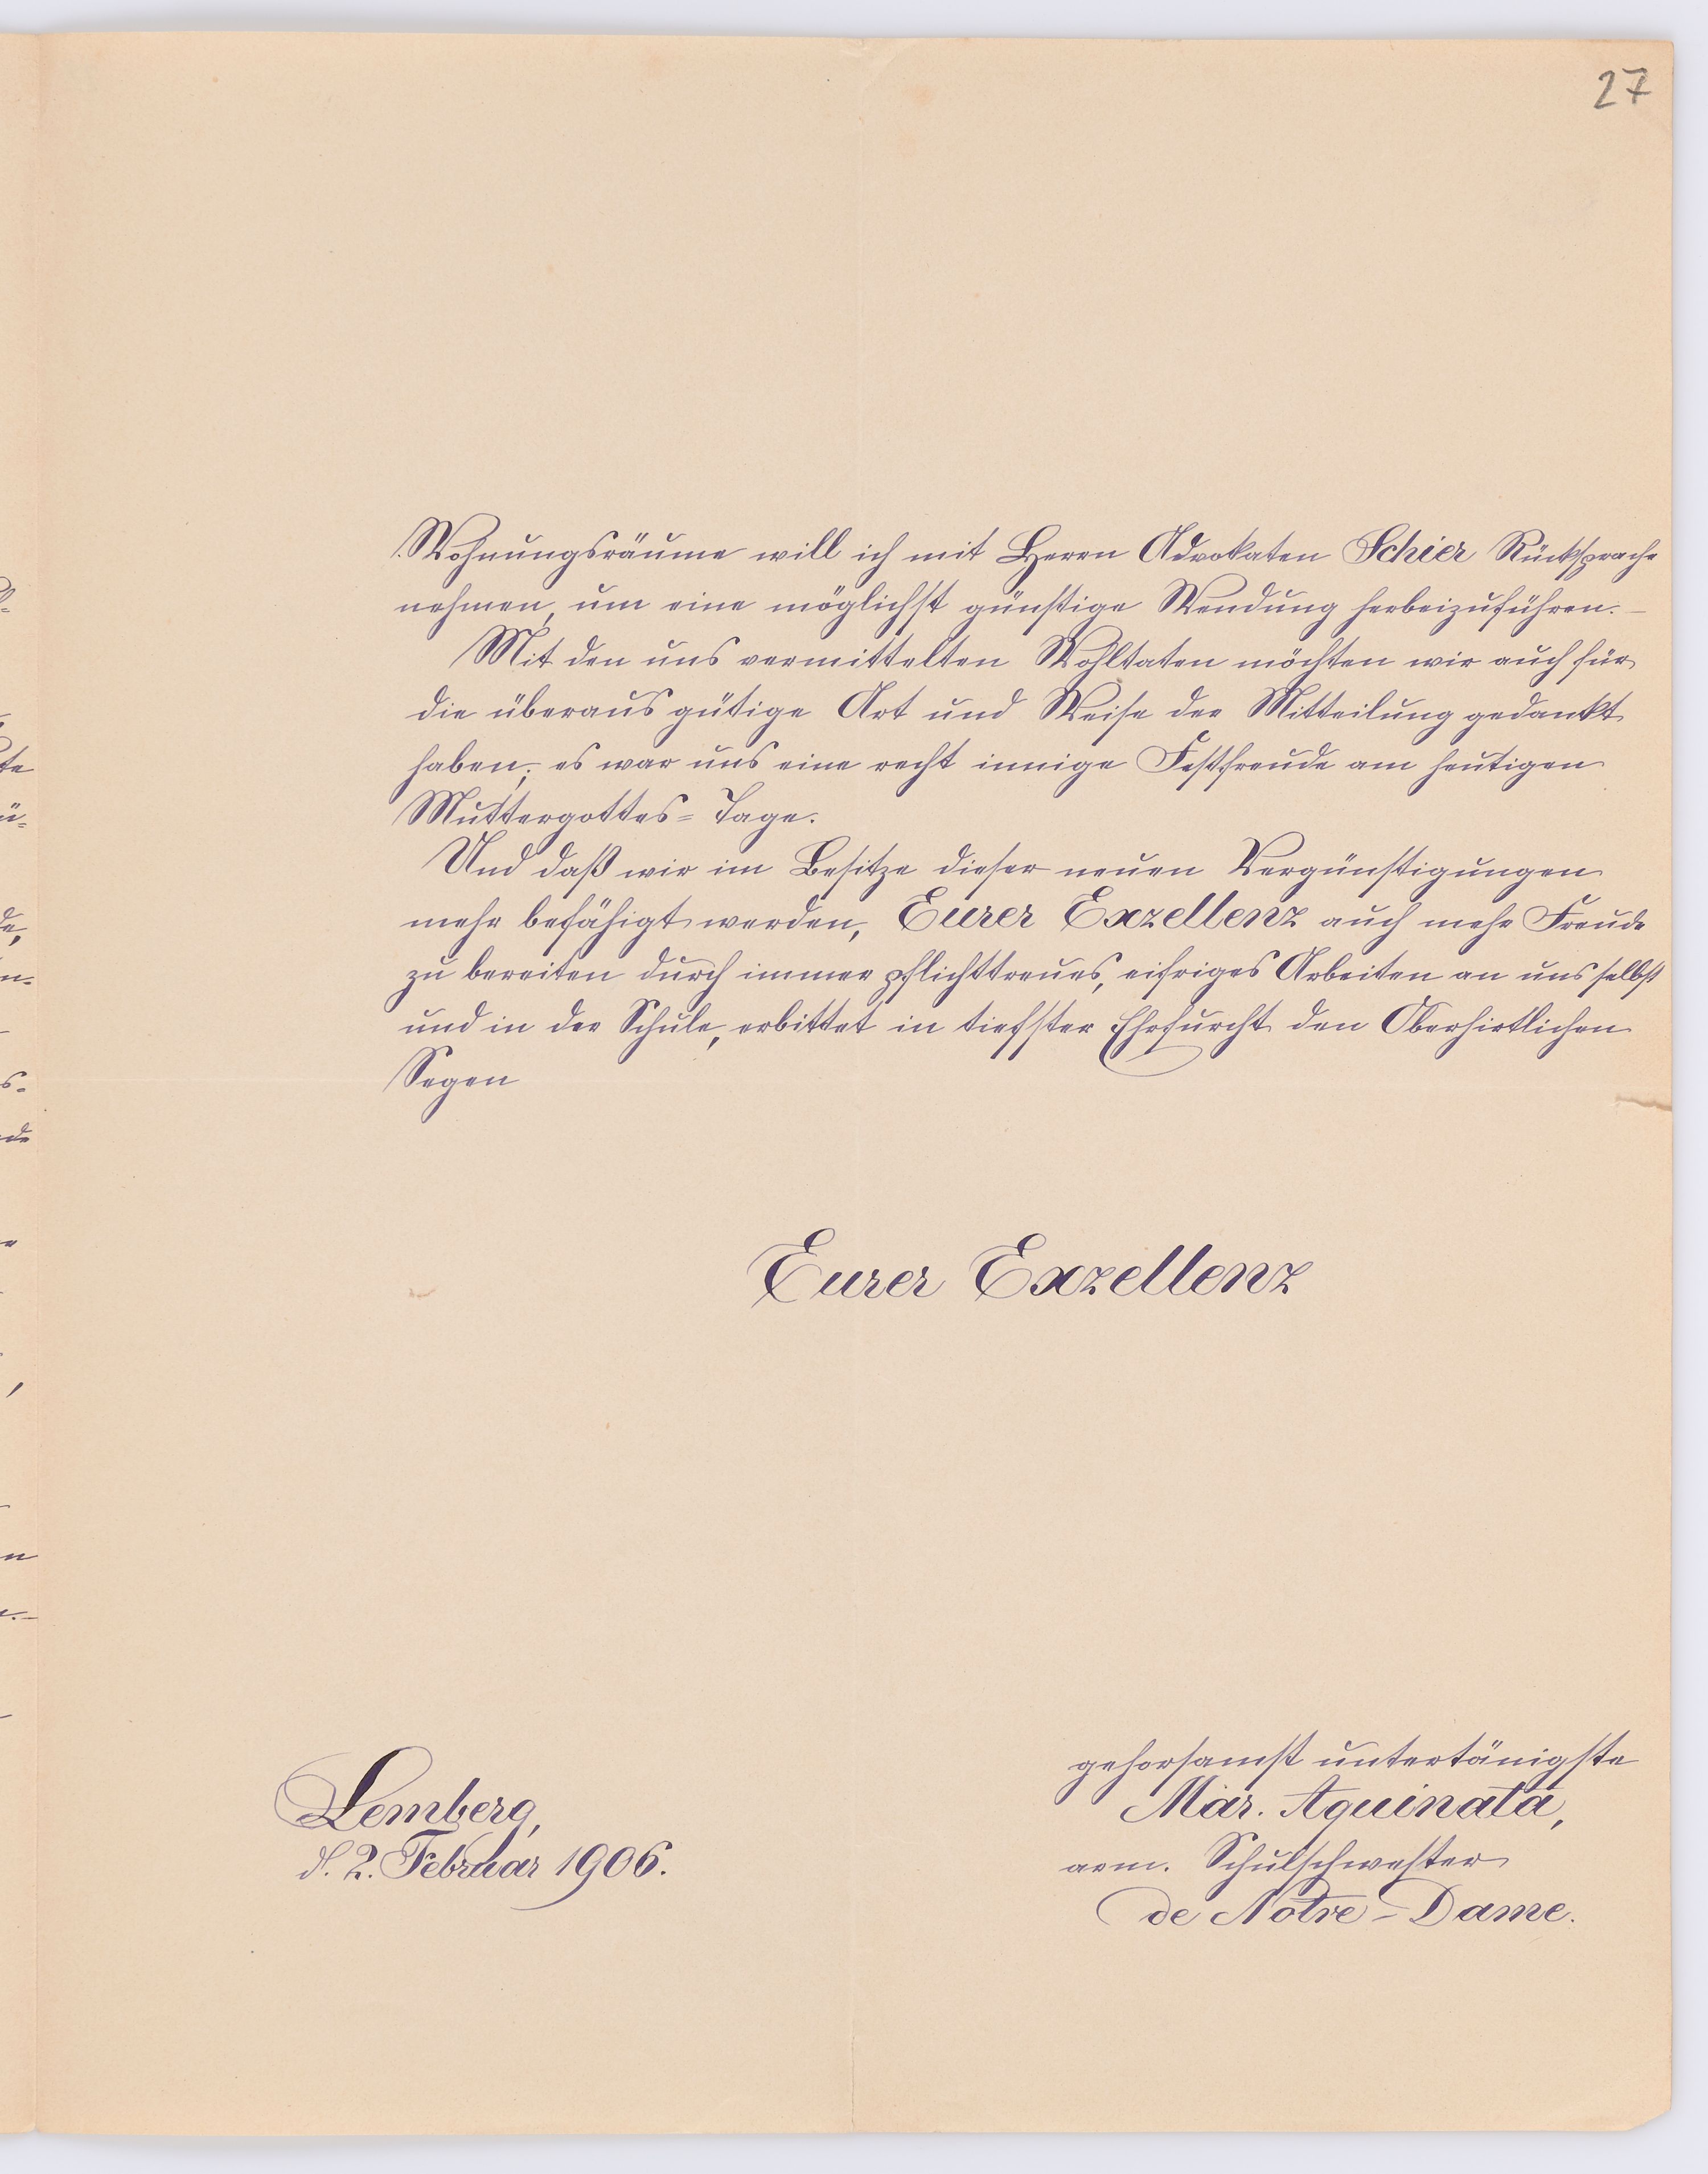 27
Wohnungsräume will ich mit Herrn Advokaten Schier Rücksprache
nehmen, um eine möglichst günstige Wendung herbeizuführen. –
Mit den uns vermittelten Wohltaten möchten wir auch für
die überaus gütige Art und Weise der Mitteilung gedankt
haben; es war uns eine recht innige Festfreude am heutigen
Muttergottes-Tage.
Und daß wir im Besitze dieser neuen Vergünstigungen
mehr befähigt werden, Eurer Exzellenz auch mehr Freude
zu bereiten durch immer pflichttreues, eifriges Arbeiten an uns selbst
und in der Schule, erbittet in tiefster Ehrfurcht den Oberhirtlichen
Segen
Eurer Exzellenz
gehorsamst untertänigste
Mar. Aquinata,
arm. Schulschwester
de Notre-Dame.
Lemberg,
d. 2. Februar 1906.